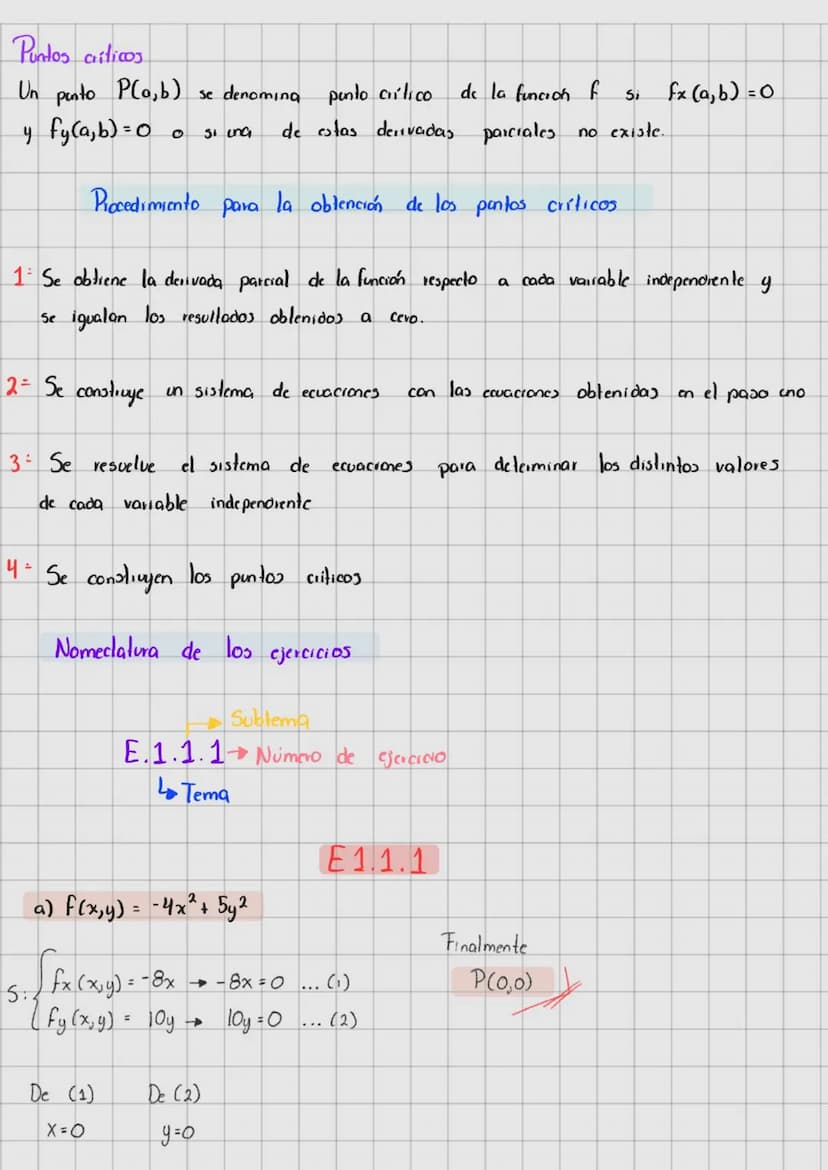 Puntos críticos
Un punto P(a,b) se denomina punto crítico de la función f si fx(a,b)=0
y fy(a,b)=0 o si una de estas derivadas parciales no existe.
Procedimiento para la obtención de los puntos críticos
1.- Se obtiene la derivada parcial de la función respecto a cada variable independiente y
se igualan los resultados obtenidos a cero.
2.- Se construye un sistema de ecuaciones con las ecuaciones obtenidas en el paso uno
3.- Se resuelve el sistema de ecuaciones para determinar los distintos valores
de cada variable independiente
4.- Se construyen los puntos criticos
Nomeclatura de los ejercicios
Subtema
E.1.1.1→ Número de ejercicio
Tema
E1.1.1
a) f(x,y) = -4x²+ 5y²
S: { fx(x,y) = -8x → -8x=0 ... (1)
fy(x,y) = 10y → 10y=0 ... (2)
Finalmente
P(0,0)
De (1) De (2)
x=0 y=0